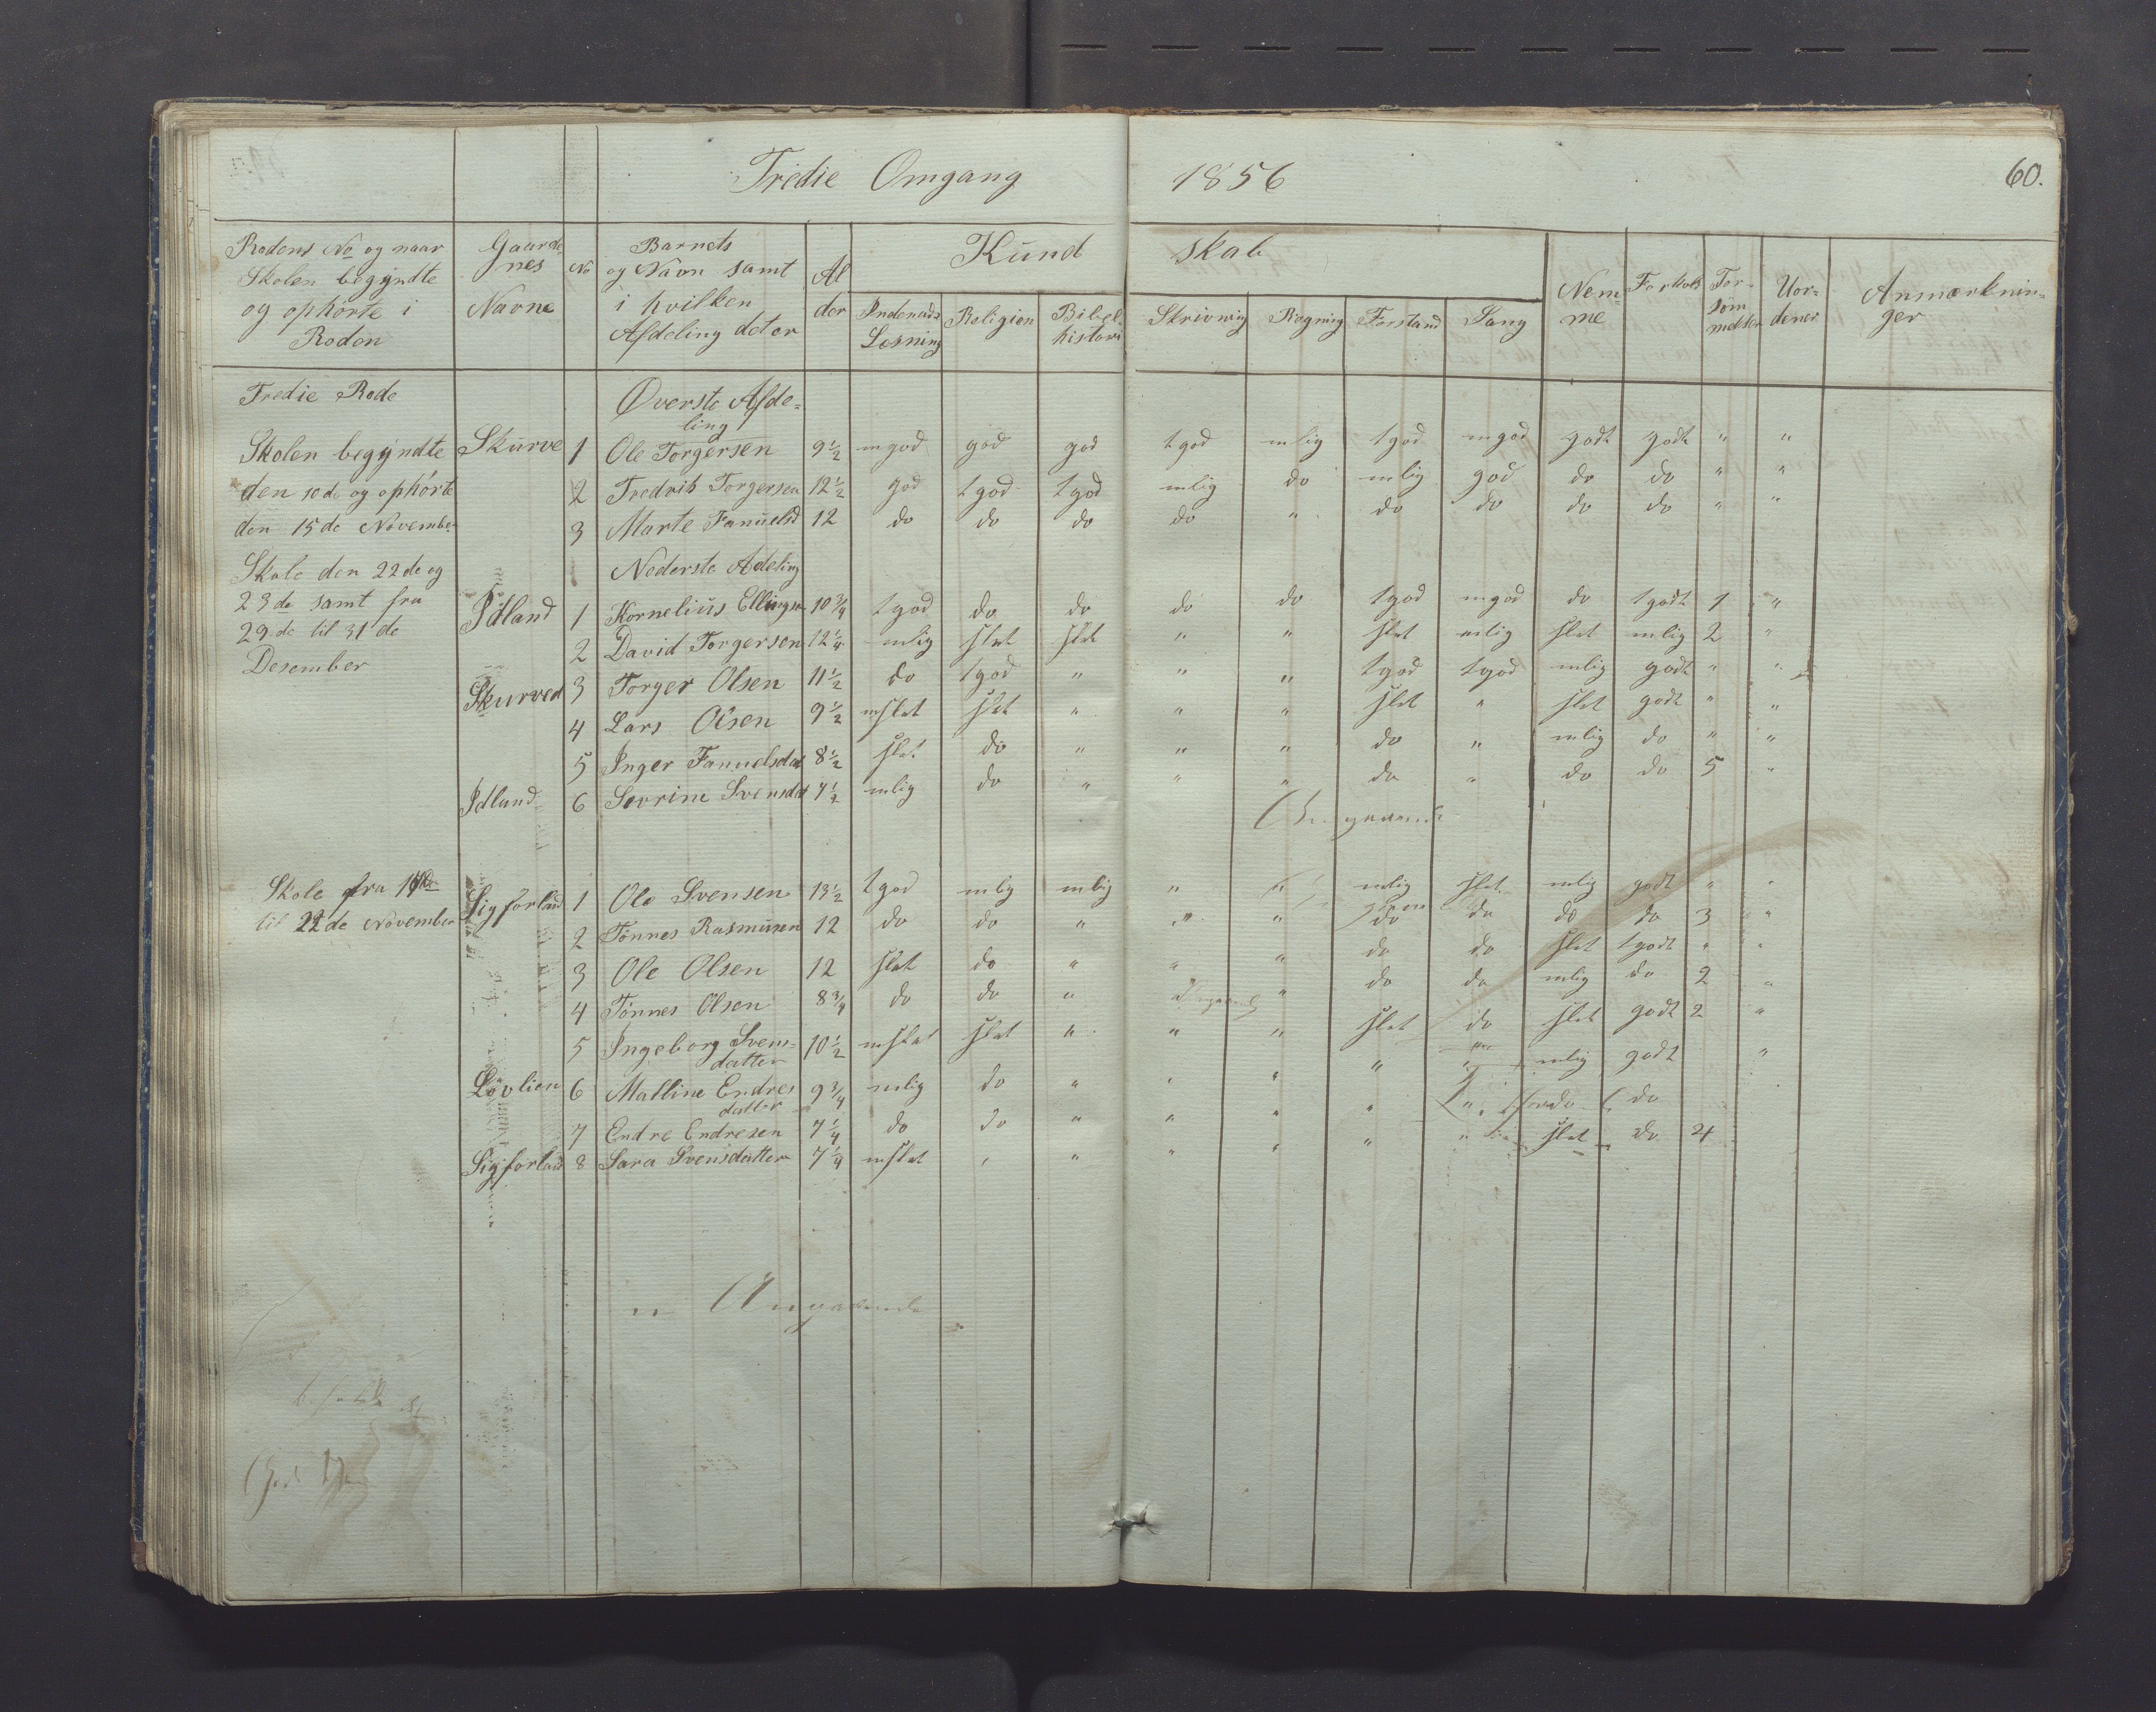 Tredie Omgang 1856 60.
Rodens No og naar Skolen begyndte og ophørte i Roden
Gaardenes Navne
No
Barnets og Navn samt i hvilken Afdeling det er
Alder
Kundskab
Indenads Læsning Religion Bibelhistori Skrivning Rægning Forstand Sang
Nemme
Forhold
Forsömmelser
Uordener
Anmærkninger
Tredie Rode Øverste Afdeling
Skolen begyndte Skurve 1 Ole Torgersen 9½ mgod god god tgod mlig tgod mgod godt godt " "
den 10de og ophörte 2 Fredrik Torgersen 12½ god tgod tgod mlig do mlig god do do " "
den 15de November 3 Marte Fanuelsd 12 do do do do " do do do do " "
Skole den 22de og Nederste Adeling
23de samt fra Idland 1 Kornelius Ellingsen 10¾ tgod do do do do tgod mgod do tgodt 1 "
29de til 31de 2 David Torgersen 12¼ mlig slet slet " " slet mlig slet mlig 2 "
Desember
Skurved 3 Torger Olsen 11½ do tgod " " " tgod tgod mlig godt " "
4 Lars Olsen 9½ mslet slet " " " slet " slet godt " "
5 Inger Fanuelsdat 8½ slet do " " " do " mlig do " "
Idland 6 Sevrine Svensdat 7½ mlig do " " " do " do do 5 "
Skole fra 17de Sigforland 1 Ole Svensen 13½ tgod mlig mlig " " mlig slet mlig godt " "
til 22de November 2 Tönnes Rasmusen 12 do do " " " do do do do 3 "
3 Ole Olsen 12 slet do " " " do do slet tgodt " "
4 Tönnes Olsen 8¾ do do " " do do mlig do 2 "
5 Ingeborg Svensdatter 10½ mslet slet " " " slet do slet godt 2 "
Lövlien 6 Malline Endresdatter 9¾ mlig do " " " " " mlig godt "
7 Endre Endresen 7¼ do do " " " " " do do
Sigforland 8 Sara Svensdatter 7¼ mslet " " " " " " slet do 4